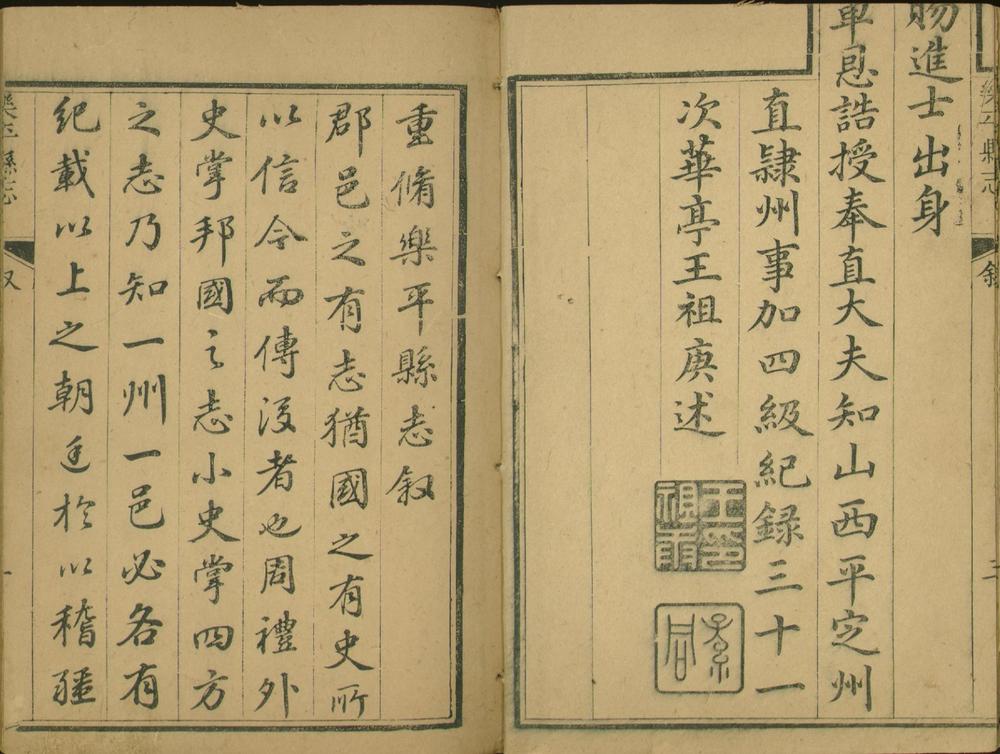 賜進士出身
覃恩誥授奉直大夫知山西平定州
直隸州事加四級紀錄三十一
次華亭王祖庚述
樂平縣志
敘
三
重脩樂平縣志叙
郡邑之有志猶國之有史所
以信今而傳後者也周禮外
史掌邦國之志小史掌四方
之志乃知一州一邑必各有
紀載以上之朝廷於以稽疆
樂平縣志
叙
一